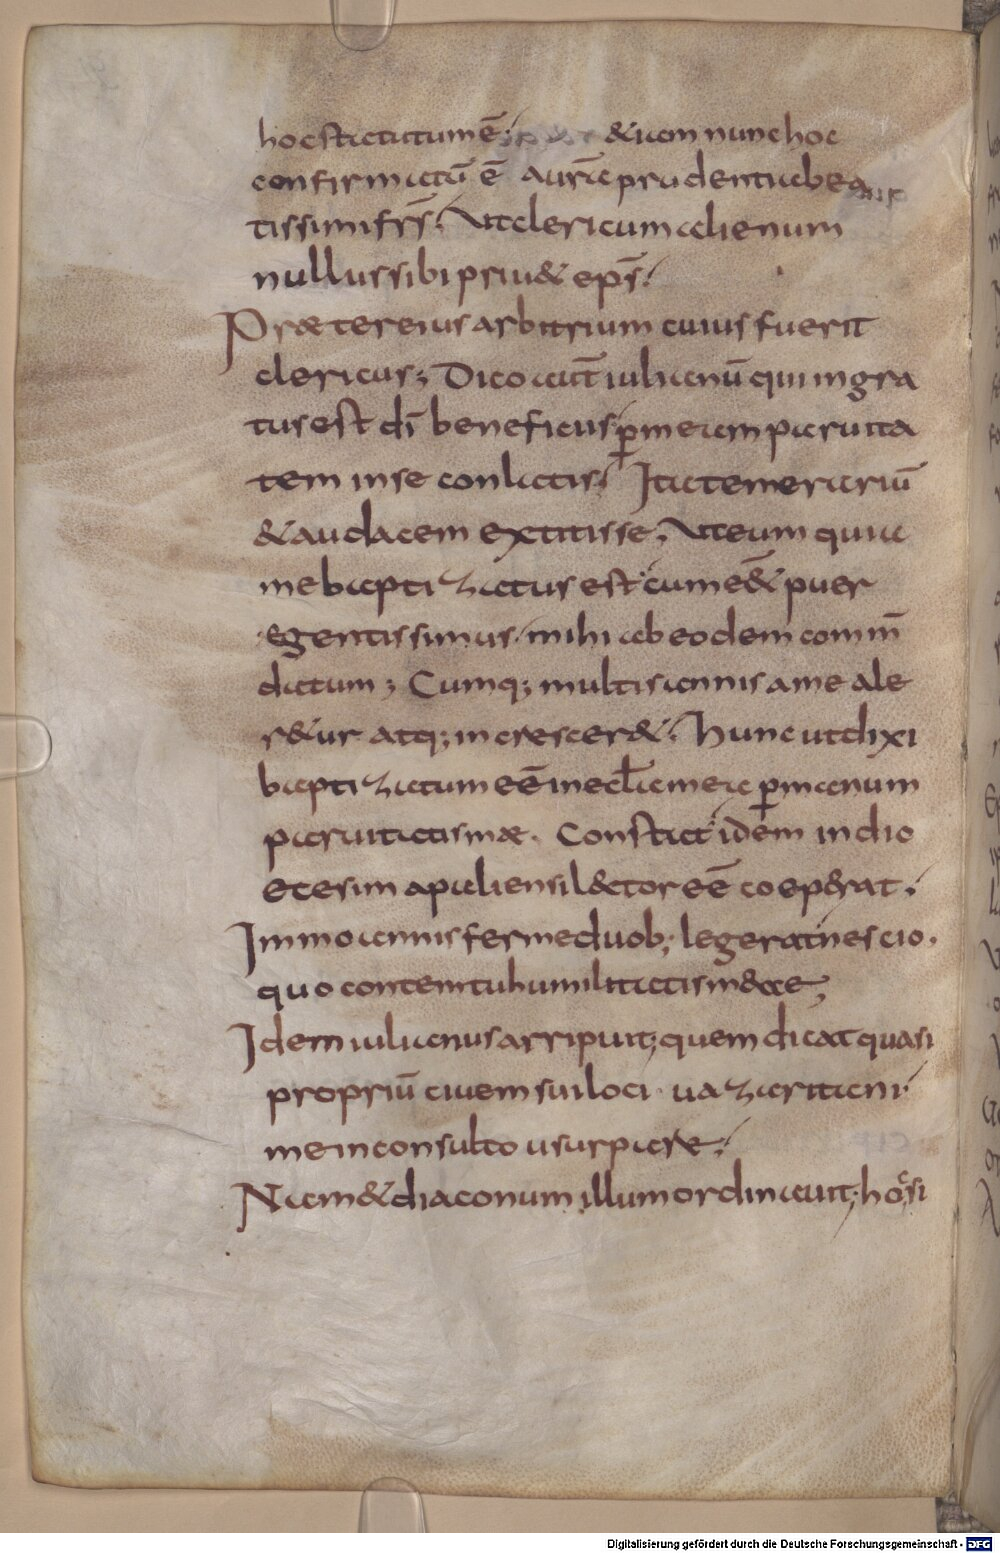 hoc statutum ē; &iam nunc hoc
confirmatū ē a ur̄a prudentia bea
tissimi frs̄; ut clericum alienum
nullus sibi priu& eps̄;
Præter eius arbitrium cuius fuerit
clericus; Dico aut̄ iulianū qui ingra
tus est dī beneficiis p̄ meam paruita
tem in se conlatis; Ita temerariū
&audacem extitisse, ut eum qui a
me baptizatus est cum ē& puer
egentissimus mihi ab eodem comm̄
datum; Cumq; multis annis a me ale
r&ur atq; in crescer&. hunc ut dixi
baptizatum eē in ecl̄a mea p̄ manum
paruitatis mæ. Constat idem in dio
cesim apaliensi l&ctor eē coeperat.
Immo annis ferme duob; legerat nescio.
quo contemtu humilitatis m&ae,
Idem iulianus arripuit; quem dicat quasi
propriū ciuem sui loci uazaritani
me inconsulto usurpare;
Nam &diaconum illum ordinauit; hoc si
Digitalisierung gefördert durch die Deutsche Forschungsgemeinschaft - DFG